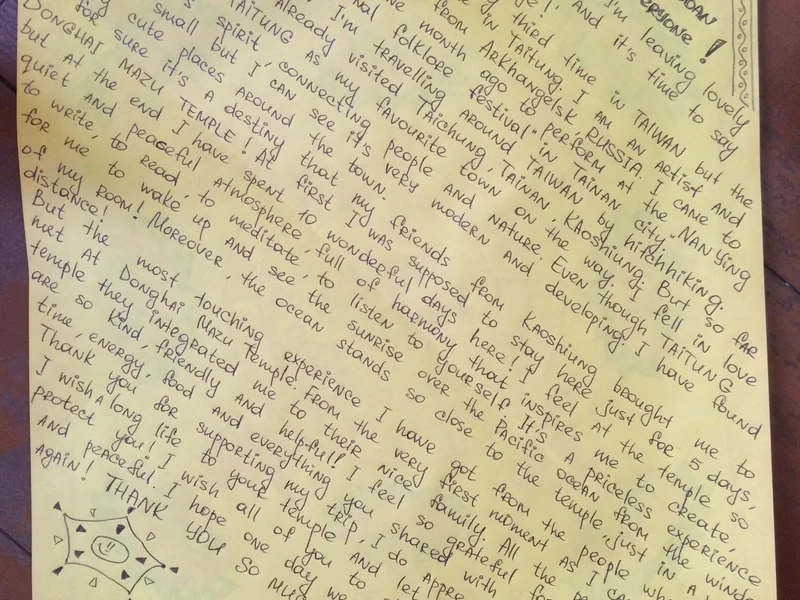 DOAN
EVERYONE!
I'm leaving lovely
and it's time to say
third time in TAIWAN but the
time in Taitung. I am an artist and
from Arkhangelsk, RUSSIA. I came to
one month ago to perform at the "Nan Ying
folklore festival" in Tainan city.
I'm travelling around TAIWAN by hitchhiking.
Already visited Taichung, Tainan, Kaoshiung. But so far
TAITUNG as my favourite town on the way. I fell in love
spirit, connecting people and nature. Even though TAITUNG
small but I can see it's very modern and developing. I have found
cute places around the town.
for sure it's a destiny that my friends from Kaoshiung brought me to
DONGHAI MAZU TEMPLE! At first I was supposed to stay here just for 5 days,
but at the end I have spent 10 wonderful days here! I feel at the temple so
quiet and peaceful atmosphere, full of harmony that inspires me to create,
to write, to read, to meditate, to listen to yourself. It's a priceless experience
for me to wake up and see the sunrise over the Pacific ocean from the window
of my room! Moreover, the ocean stands so close to the temple, just in a
distance!
But the most touching experience I have got from the people
met at Donghai Mazu Temple. From the very first moment as I
temple they integrated me to their nice family. All the
are so kind, friendly and helpful! I feel so grateful
time, energy, food and everything you shared with
Thank you for supporting my trip, I do
I wish a long life to your temple and let
protect you! I wish all of you to
and peaceful. I hope one day we
again! THANK YOU SO MUCH